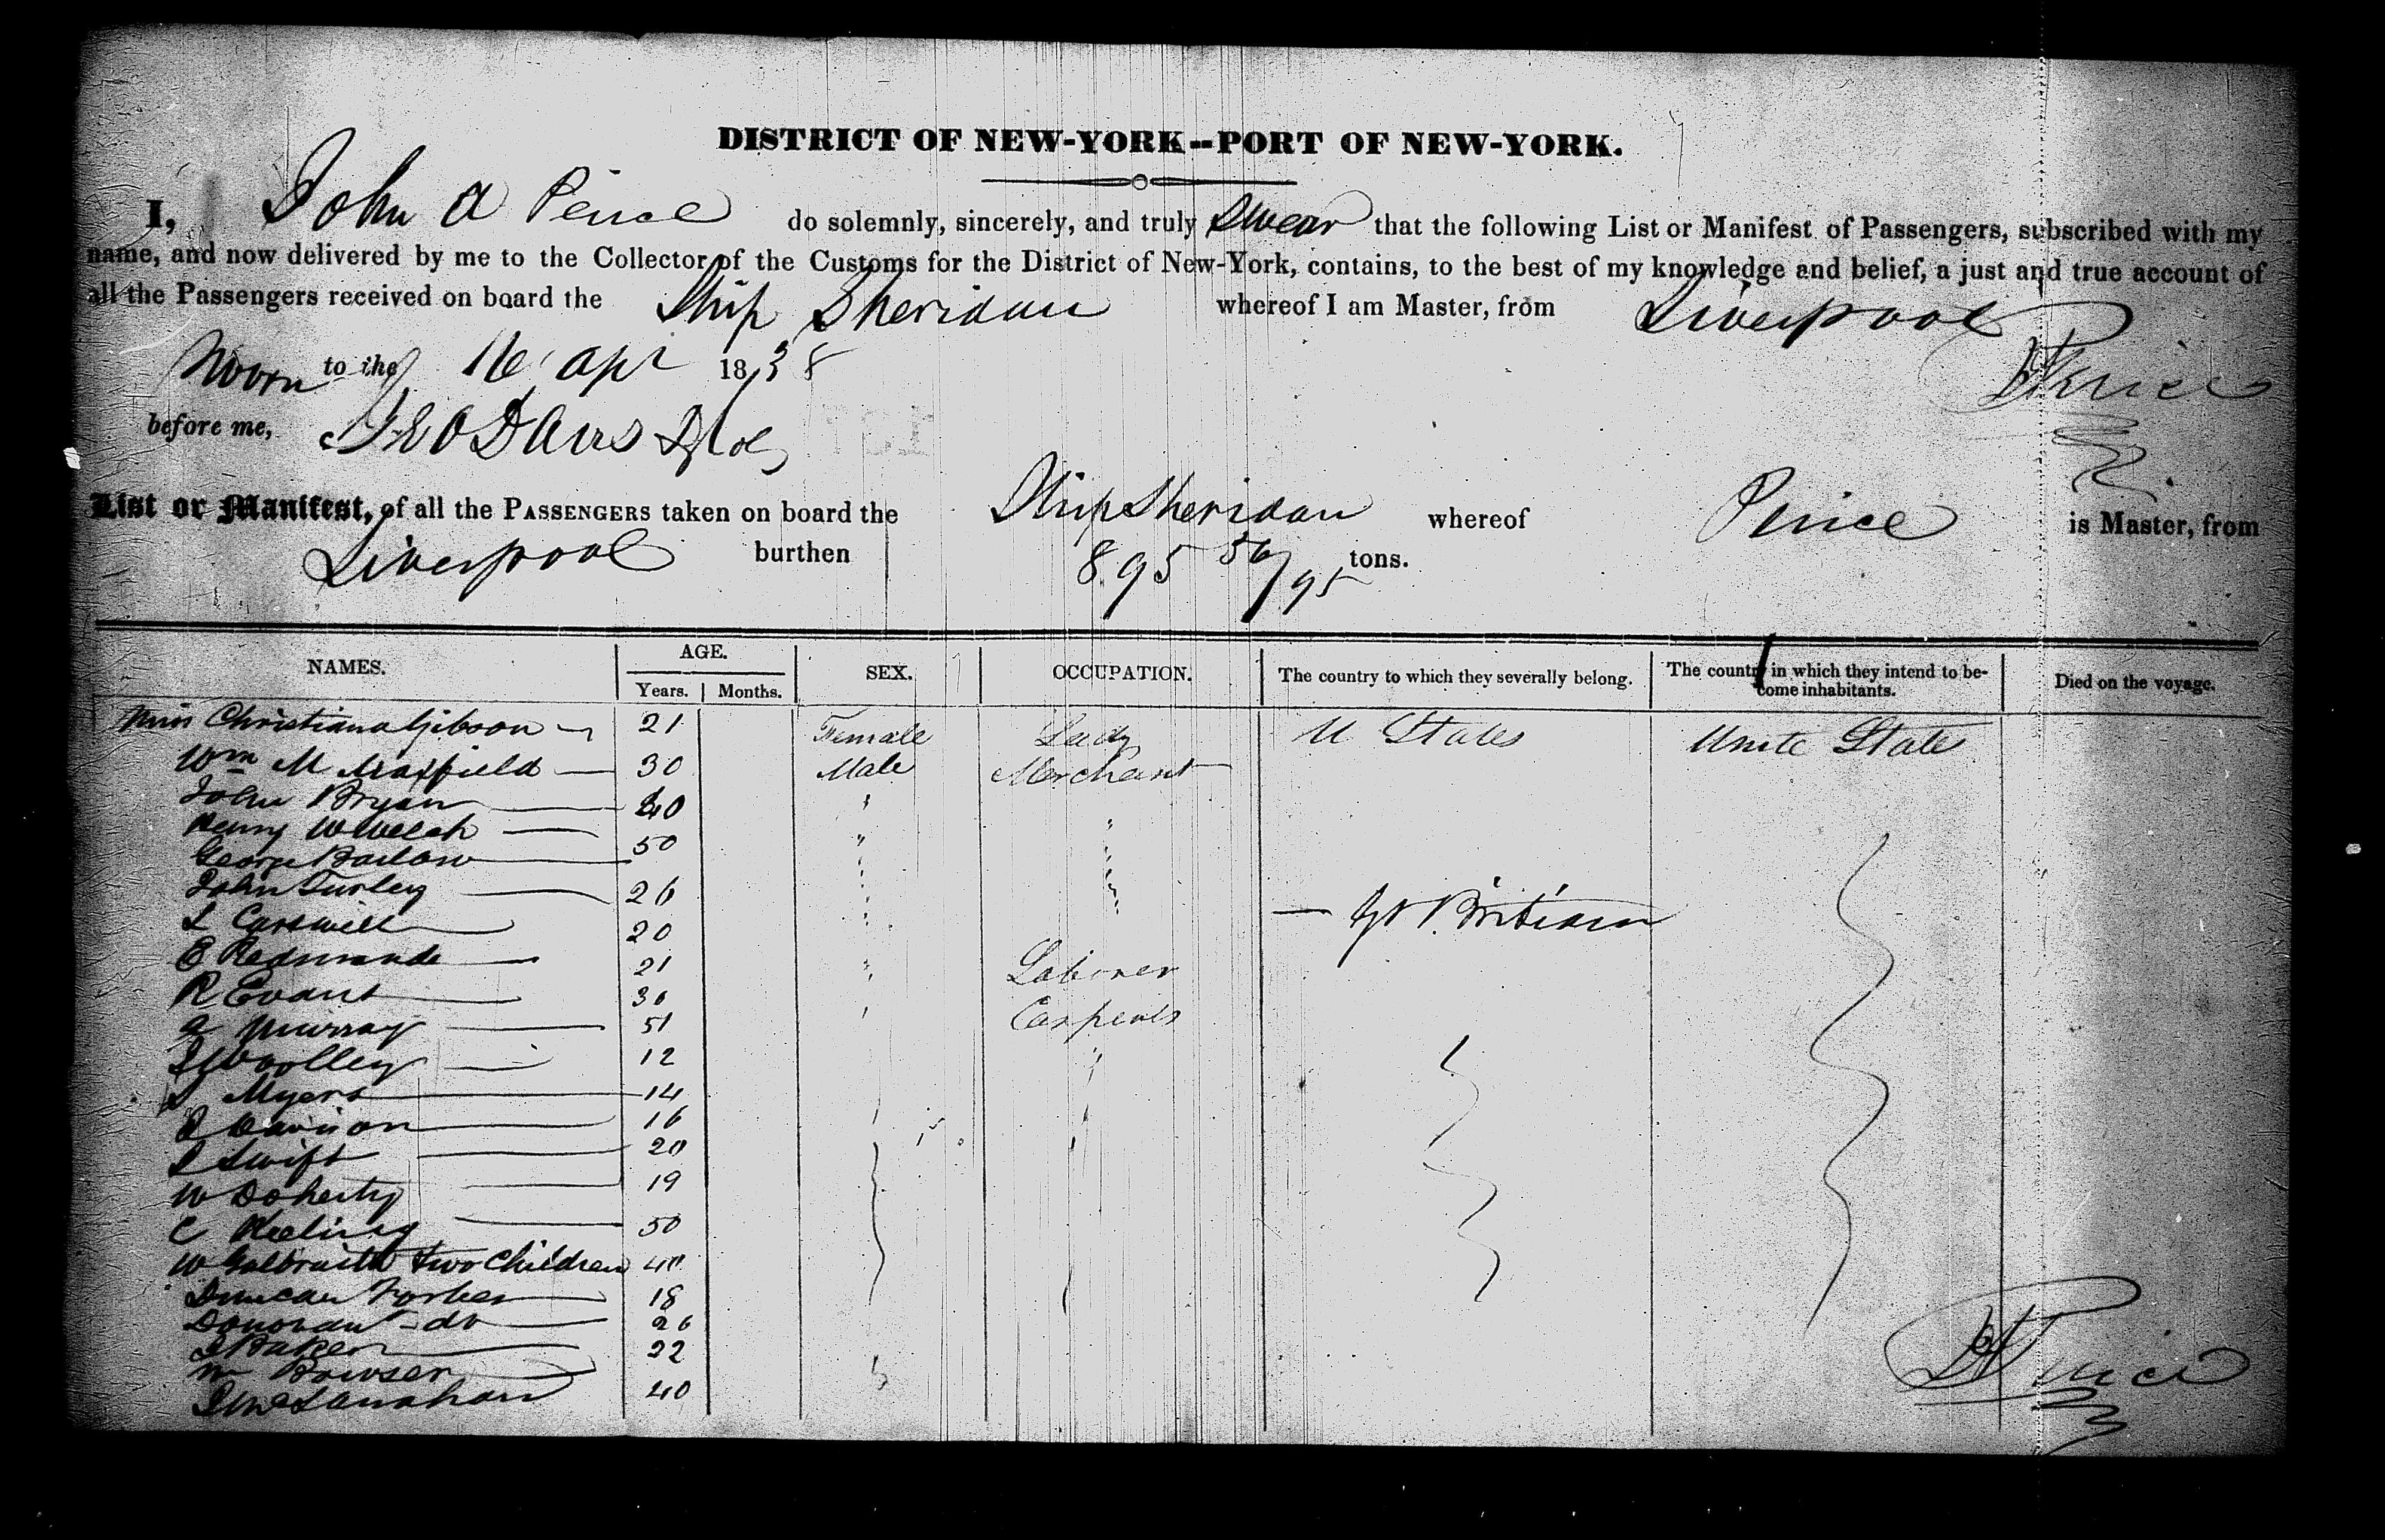 DISTRICT OF NEW-YORK--PORT OF NEW-YORK.
I, John A Peirce do solemnly, sincerely, and truly Swear that the following List or Manifest of Passengers, subscribed with my
name, and now delivered by me to the Collector of the Customs for the District of New-York, contains, to the best of my knowledge and belief, a just and true account of
all the Passengers received on board the Ship Sheridan whereof I am Master, from Liverpool
Sworn to the 16 apr 1838
before me, Geo Davis
List or Manifest, of all the PASSENGERS taken on board the Ship Sheridan whereof Peirce is Master, from
Liverpool burthen 895 56/95 tons.
NAMES. AGE. SEX. OCCUPATION. The country to which they severally belong. The country in which they intend to be-come inhabitants. Died on the voyage.
Years. Months.
Miss Christiana Gibson 21 Female Lady U States Unite States
Wm M Maxfield 30 Male Merchant
John Bryan 40
Henry W Welsh
George Barlow 50
John Turley 26 Gt Britian
L Carswell 20
E Redmunde 21 Laborer
R Evans 30 Carpenter
Murray 51
Woolley 12
Myers 14
16
Swift 20
W Doherty 19
C Keeling 50
W Galbraith Two Children 40
Duncan Forbes 18
Donovan - do 26
Baker 22
Bowser
McLanahan 40